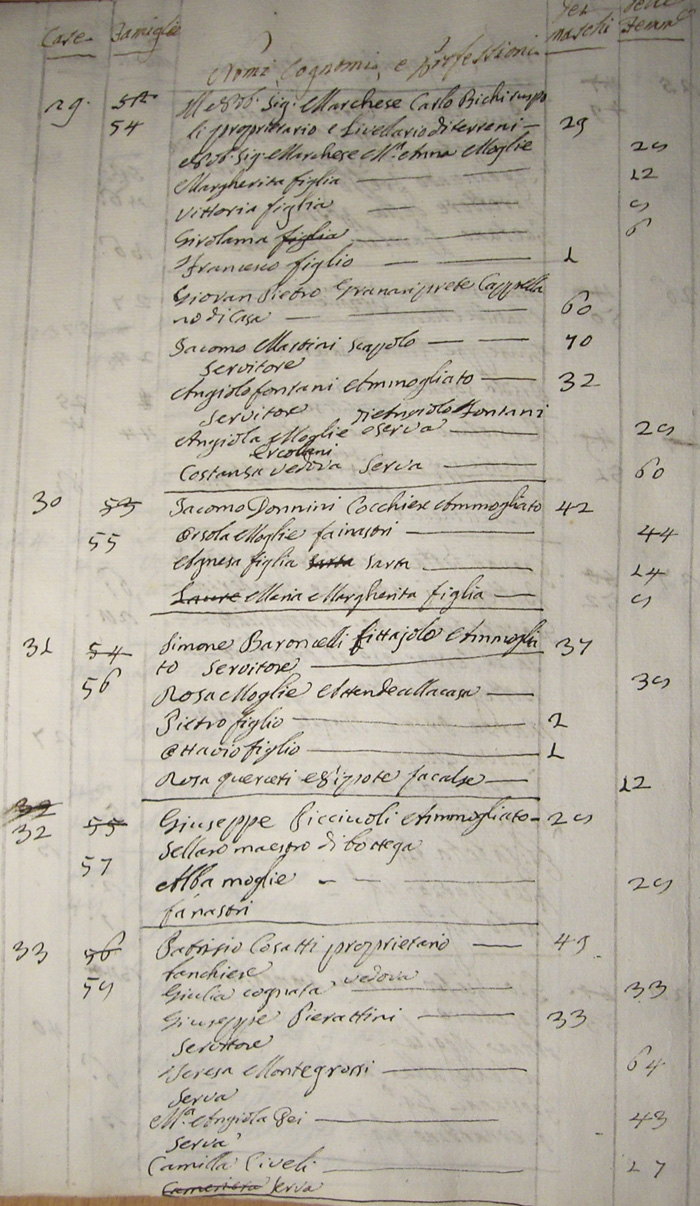 Case Famiglie Nomi, Cognomi, e Professioni Maschi Femm
29. 52 Ill e Sig. Marchese Carlo Bichi ruspo
54 li proprietario e Livellario di terreni 29
Sig. Marchese Mª Anna Moglie 29
Margherita figlia 12
Vittoria figlia 9
Girolama figlia 6
Francesco figlio 1
Giovan Pietro Granari prete Cappella
no di Casa 60
Jacomo Mastini scapolo 70
Servitore
Angiolo fontani Ammogliato 32
Servitore di Angiolo Fontani
Angiola Moglie e serva 29
Ercolani
Costansa vedova Serva 60
30 53 Jacomo Donnini Cocchiere Ammogliato 42
55 Orsola Moglie fa nastri 44
Agnesa figlia Sarta Sarta 14
Laura Maria Margherita figlia 9
31 54 Simone Baroncelli fittajolo Ammoglia 37
to Servitore
56 Rosa Moglie Attende alla casa 39
Pietro figlio 2
Ottavio figlio 1
Rosa querceti Nipote fa calse 12
32
32 55 Giuseppe Picciuoli Ammogliato 29
Sellaro maestro di bottega
57 Alba moglie 29
fa nastri
33 56 Patrisio Cosatti proprietario 49
banchiere
59 Giulia cognata vedova 33
Giuseppe Pierattini 33
Servitore
Teresa Montegrossi 64
Serva
Mª Angiola Pei 43
Serva
Camilla Civeli 27
Cameriera Serva